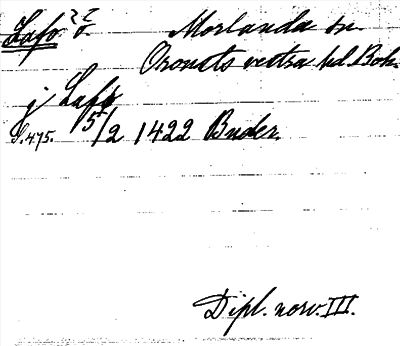 Lafö ? ? Morlanda sn.
Orousts vestra hd Boh.
j Lafö
S. 475. 15/2 1422 Buder.
Dipl. norv. III.